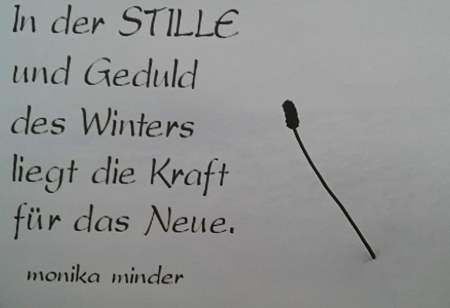 In der STILLE
und Geduld
des Winters
liegt die Kraft
für das Neue.
monika minder